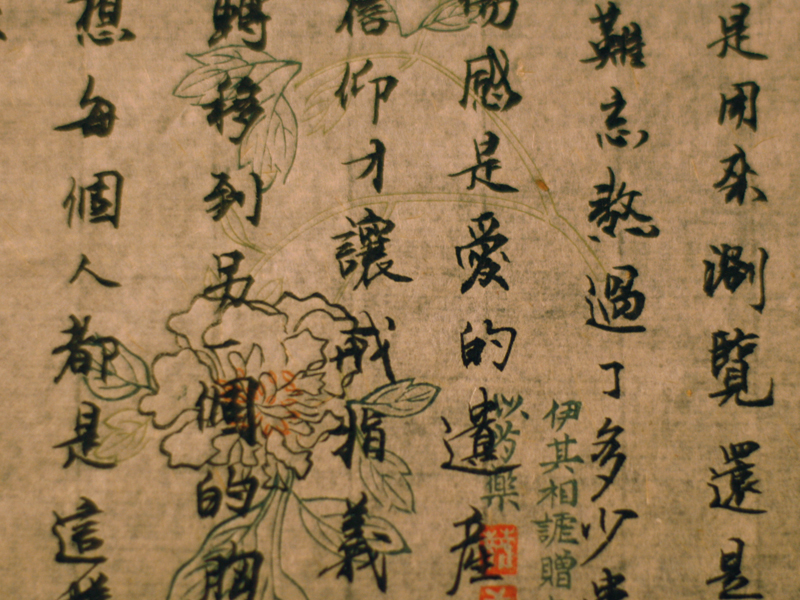 是用來瀏覽還是
難忘熬過了多少患
傷感是愛的遺產
信仰才讓戒指義
轉移到另一個的胸
想每個人都是這樣
伊其相謔贈
以芍藥